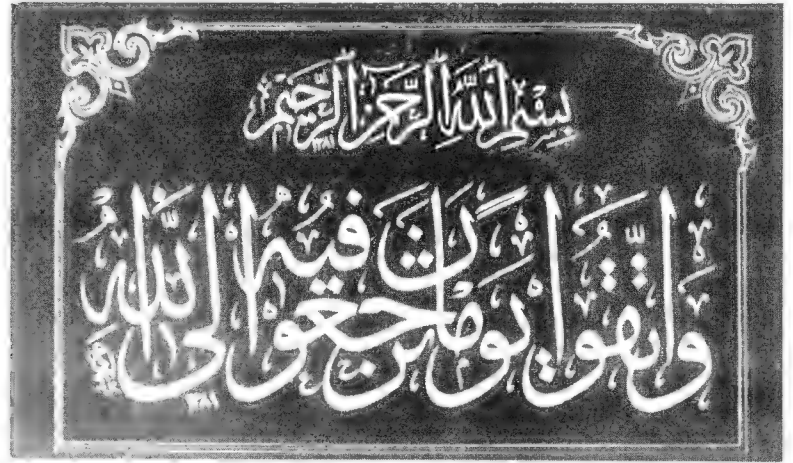 بِسْمِ اللَّهِ الرَّحْمَٰنِ الرَّحِيمِ
وَاتَّقُوا يَوْمًا تُرْجَعُونَ فِيهِ إِلَى اللَّهِ